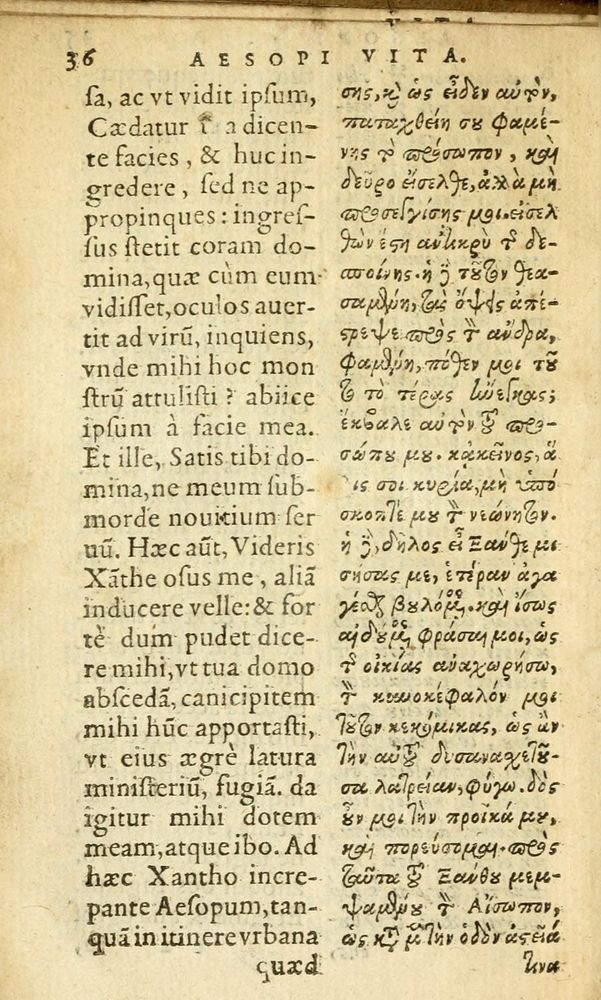 36 AESOPI VITA.
ſa, ac vt vidit ipſum,
Cædatur a dicen-
te facies, & huc in-
gredere, ſed ne ap-
propinques: ingreſ-
ſus ſtetit coram do-
mina, quæ cùm eum
vidiſſet, oculos auer-
tit ad virũ, inquiens,
vnde mihi hoc mon
ſtrũ attuliſti? abiice
ipſum à facie mea.
Et ille, Satis tibi do-
mina, ne meum ſub-
morde nouitium ſer
uũ. Hæc aũt, Videris
Xãthe oſus me, aliã
inducere velle: & for
tè dum pudet dice-
re mihi, vt tua domo
abſcedã, canicipitem
mihi hũc apportaſti,
vt eius ægrè latura
miniſteriũ, fugiã. da
igitur mihi dotem
meam, atque ibo. Ad
hæc Xantho incre-
pante Aeſopum, tan-
quã in itinere vrbana
quæd
σης, καὶ ὡς εἶδεν αὐτὸν,
παταχθείη σου φαμέ-
νης τὸ πρόσωπον, καὶ
δεῦρο εἴσελθε, ἀλλὰ μὴ
προσεγγίσῃς μοι. εἰσελ
θὼν ἔστη ἀντικρὺ τῆς δε-
σποίνης. ἡ δὲ τοῦτον θεα-
σαμένη, τὰς ὄψεις ἀπέ-
στρεψε πρὸς τὸν ἄνδρα,
φαμένη, πόθεν μοι τοῦ
το τὸ τέρας ἤνεγκας;
ἔκβαλε αὐτὸν τοῦ προ-
σώπου μου. κἀκεῖνος, ἅ
λις σοι κυρία, μὴ ὑπό
σκωπτέ μου τὸν νεώνητον.
ἡ δὲ, δῆλος εἶ Ξάνθε μι
σήσας με, ἑτέραν ἀγα
γέσθαι βουλόμενος. καὶ ἴσως
αἰδούμενος φράσαι μοι, ὡς
τῆς οἰκίας ἀναχωρήσω,
τὸν κυνοκέφαλόν μοι
τοῦτον κεκόμικας, ὡς ἂν
τὴν αὐτοῦ δυσανασχετοῦ-
σα λατρείαν, φύγω. δὸς
οὖν μοι τὴν προῖκά μου,
καὶ πορεύσομαι. πρὸς
ταῦτα τοῦ Ξάνθου μεμ-
ψαμένου τὸν Αἴσωπον,
ὡς κατὰ μὲν τὴν ὁδὸν ἀστεῖά
τινα